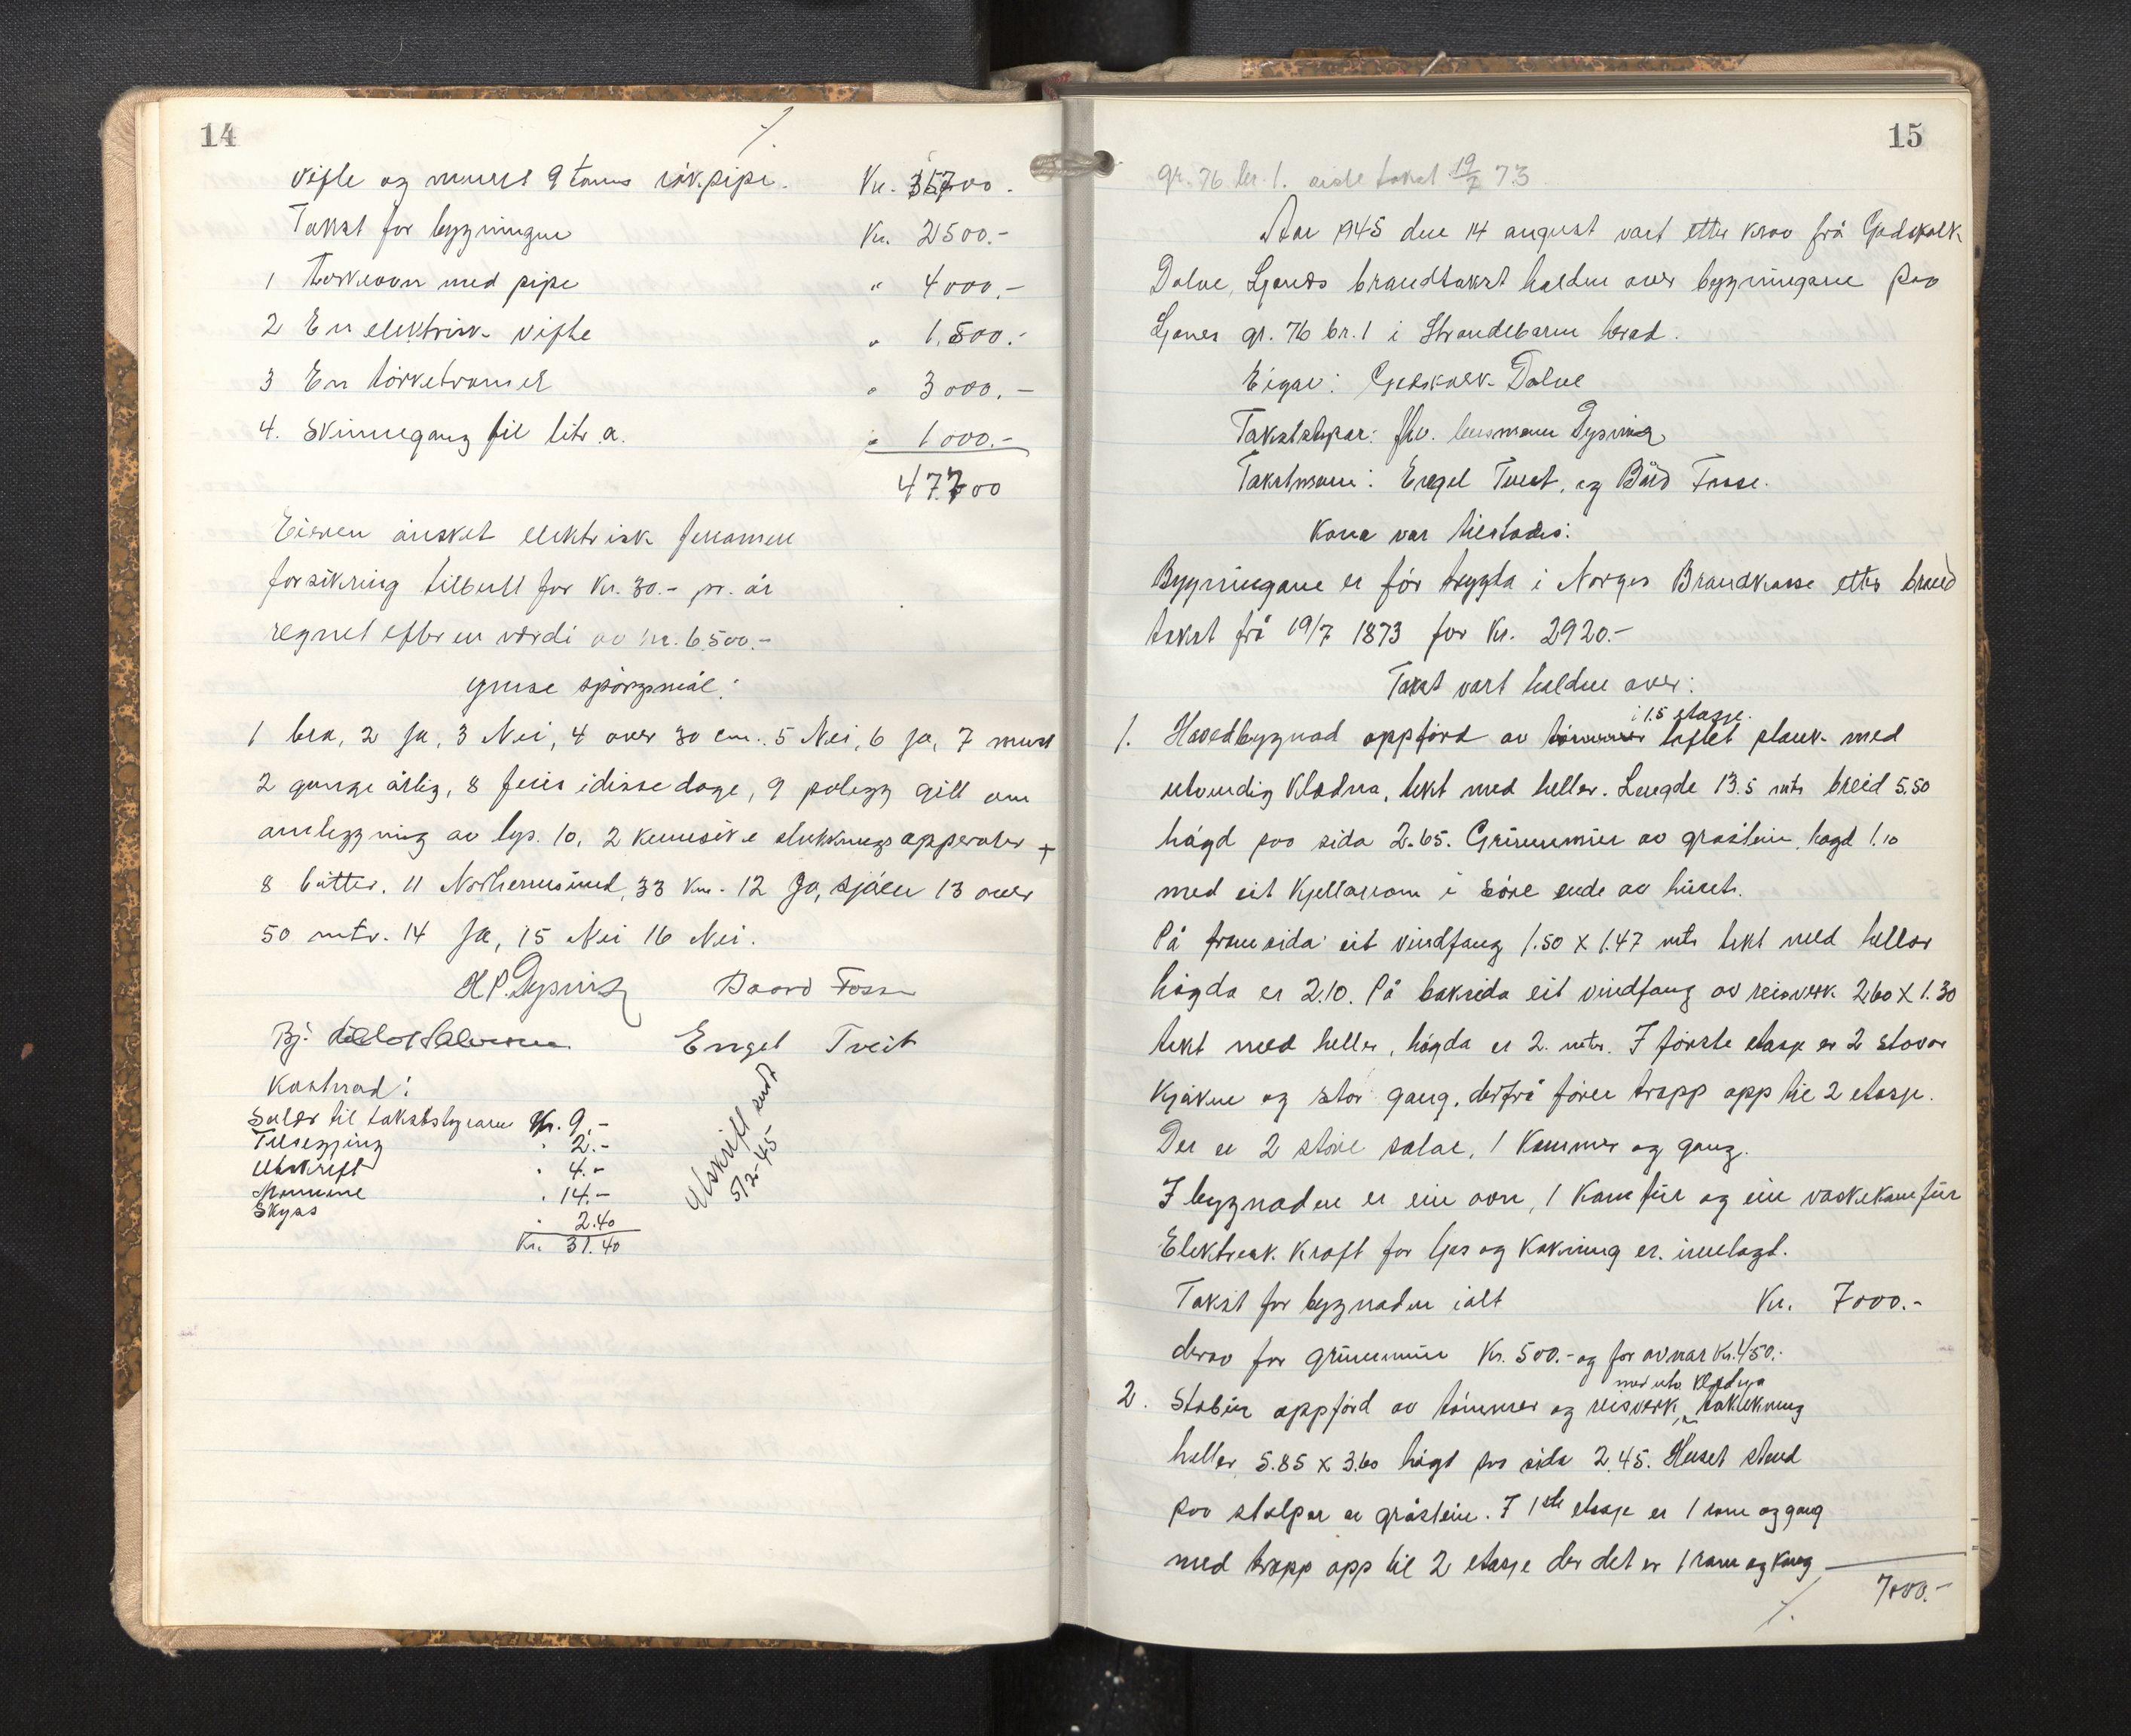 14
vifte og murt 9 toms rök.pipe. Kr. 35700.-
Takst for bygningen Kr. 2500.-
1 Torkeovn med pipe " 4000.-
2 En elektrisk vifte " 1.500.-
3 En törketromel " 3000.-
4. Skinnegang til litr. a. " 1000.-
47.700
Eieren önsket elektrisk fenomen
forsikring tilbutt for Kr. 30.- pr. år
regnet efter en værdi av kr. 6.500.-
Ymse spörgsmål:
1 bra, 2 Ja, 3 Nei, 4 over 30 cm. 5 Nei, 6 Ja, 7 minst
2 gange årlig, 8 feies i disse dage, 9 pålegg gitt om
omlegging av lys. 10, 2 kemiske slukkningsapperater +
8 bötter. 11 Norheimsund, 33 km. 12 Ja, sjöen 13 over
50 mtr. 14 Ja, 15 Nei 16 Nei.
H P. Dysvik Baard Fosse
Bj. Engel Tveit
Kostnad:
Salær til takststyraren Kr. 9.-
Tilsegging " 2.-
Utskrift " 4.-
Mennene " 14.-
Skyss " 2.40
Kr. 31.40
Utskrift sendt
5/2-45
15
gr. 76 br. 1. siste takst 19/7 73
Aar 1945 den 14 august vart etter krav frå Godskalk
Dalve, Ljones brandtakst halden over bygningane paa
Ljones gr. 76 br. 1 i Strandebarm herad.
Eigar: Godskalk Dalve
Takststyrar: fhv. lensmann Dysvik
Takstmenn: Engel Tveit, og Bård Fosse.
Kona var tilstades:
Bygningane er för trygda i Norges Brandkasse etter brand
takst frå 19/7 1873 for Kr. 2920.-
Takst vart halden over:
i 1.5 etasje.
1. Hovedbygnad oppförd av tömmer laftet plank med
utvendig Klædna, tekt med heller. Lengde 13.5 mtr breid 5.50
högd paa sida 2.65. Grunnmur av gråstein, högd 1.10
med eit Kjellarrom i söre ende av huset.
På framsida eit vindfang 1.50 x 1.47 mtr tekt med hellar
högda er 2.10. På baksida eit vindfang av reisverk 2.60 x 1.30
tekt med heller, högda er 2. mtr. I förste etasje er 2 stovor
Kjöken og stor gang, derfrå förer trapp opp til 2 etasje.
Der er 2 store salar, 1 Kammer og gang.
I bygnaden er ein ovn, 1 Kamfur og ein vaskekamfur
Elektrisk Kraft for ljos og Kokning er innlagt.
Takst for bygnaden ialt Kr. 7000.-
derav for grunnmur Kr. 500.- og for ovnar Kr. 450.-
med utv. Klædnya
2. Stabur oppförd av tömmer og reisverk, taktekning
heller 5.85 x 3.60 högd paa sida 2.45. Huset stend
paa stolpar av gråstein. I 1ste etasje er 1 rom og gang
med trapp opp til 2 etasje der det er 1 rom og gang
7000.-